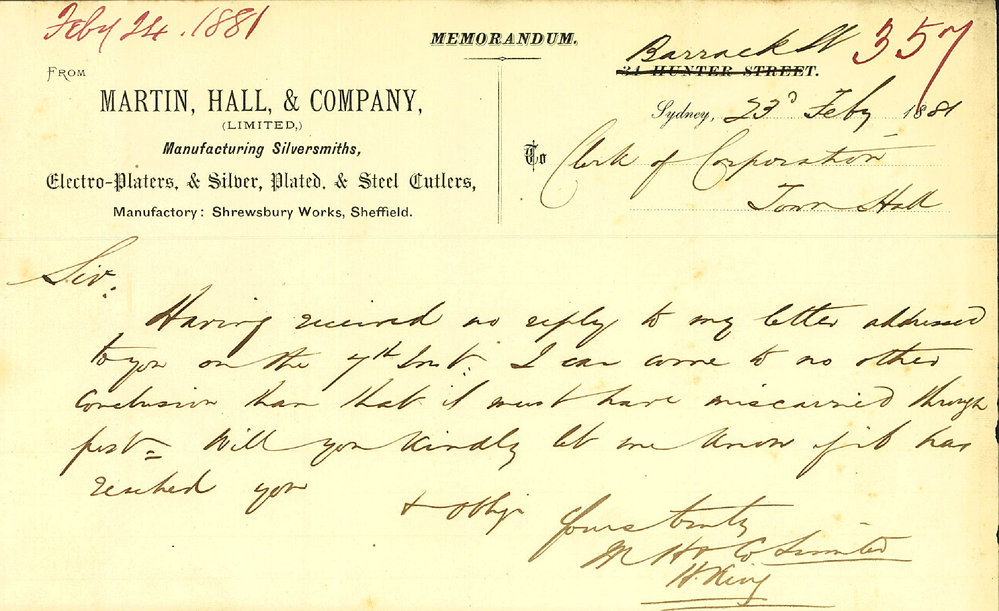 Feby 24. 1881
MEMORANDUM.
Barrack St 357
31 HUNTER STREET.
FROM
MARTIN, HALL, & COMPANY,
(LIMITED,)
Manufacturing Silversmiths,
Electro-Platers, & Silver, Plated, & Steel Cutlers,
Manufactory: Shrewsbury Works, Sheffield.
Sydney, 23d Feby 1881
To Clerk of Corporation
Town Hall
Sir:
Having received no reply to my letter addressed
to you on the 7th Inst: I can come to no other
conclusion than that it must have miscarried through
post = Will you kindly let me know if it has
reached you
& oblige
Yours truly
M H & Co Limited
H.